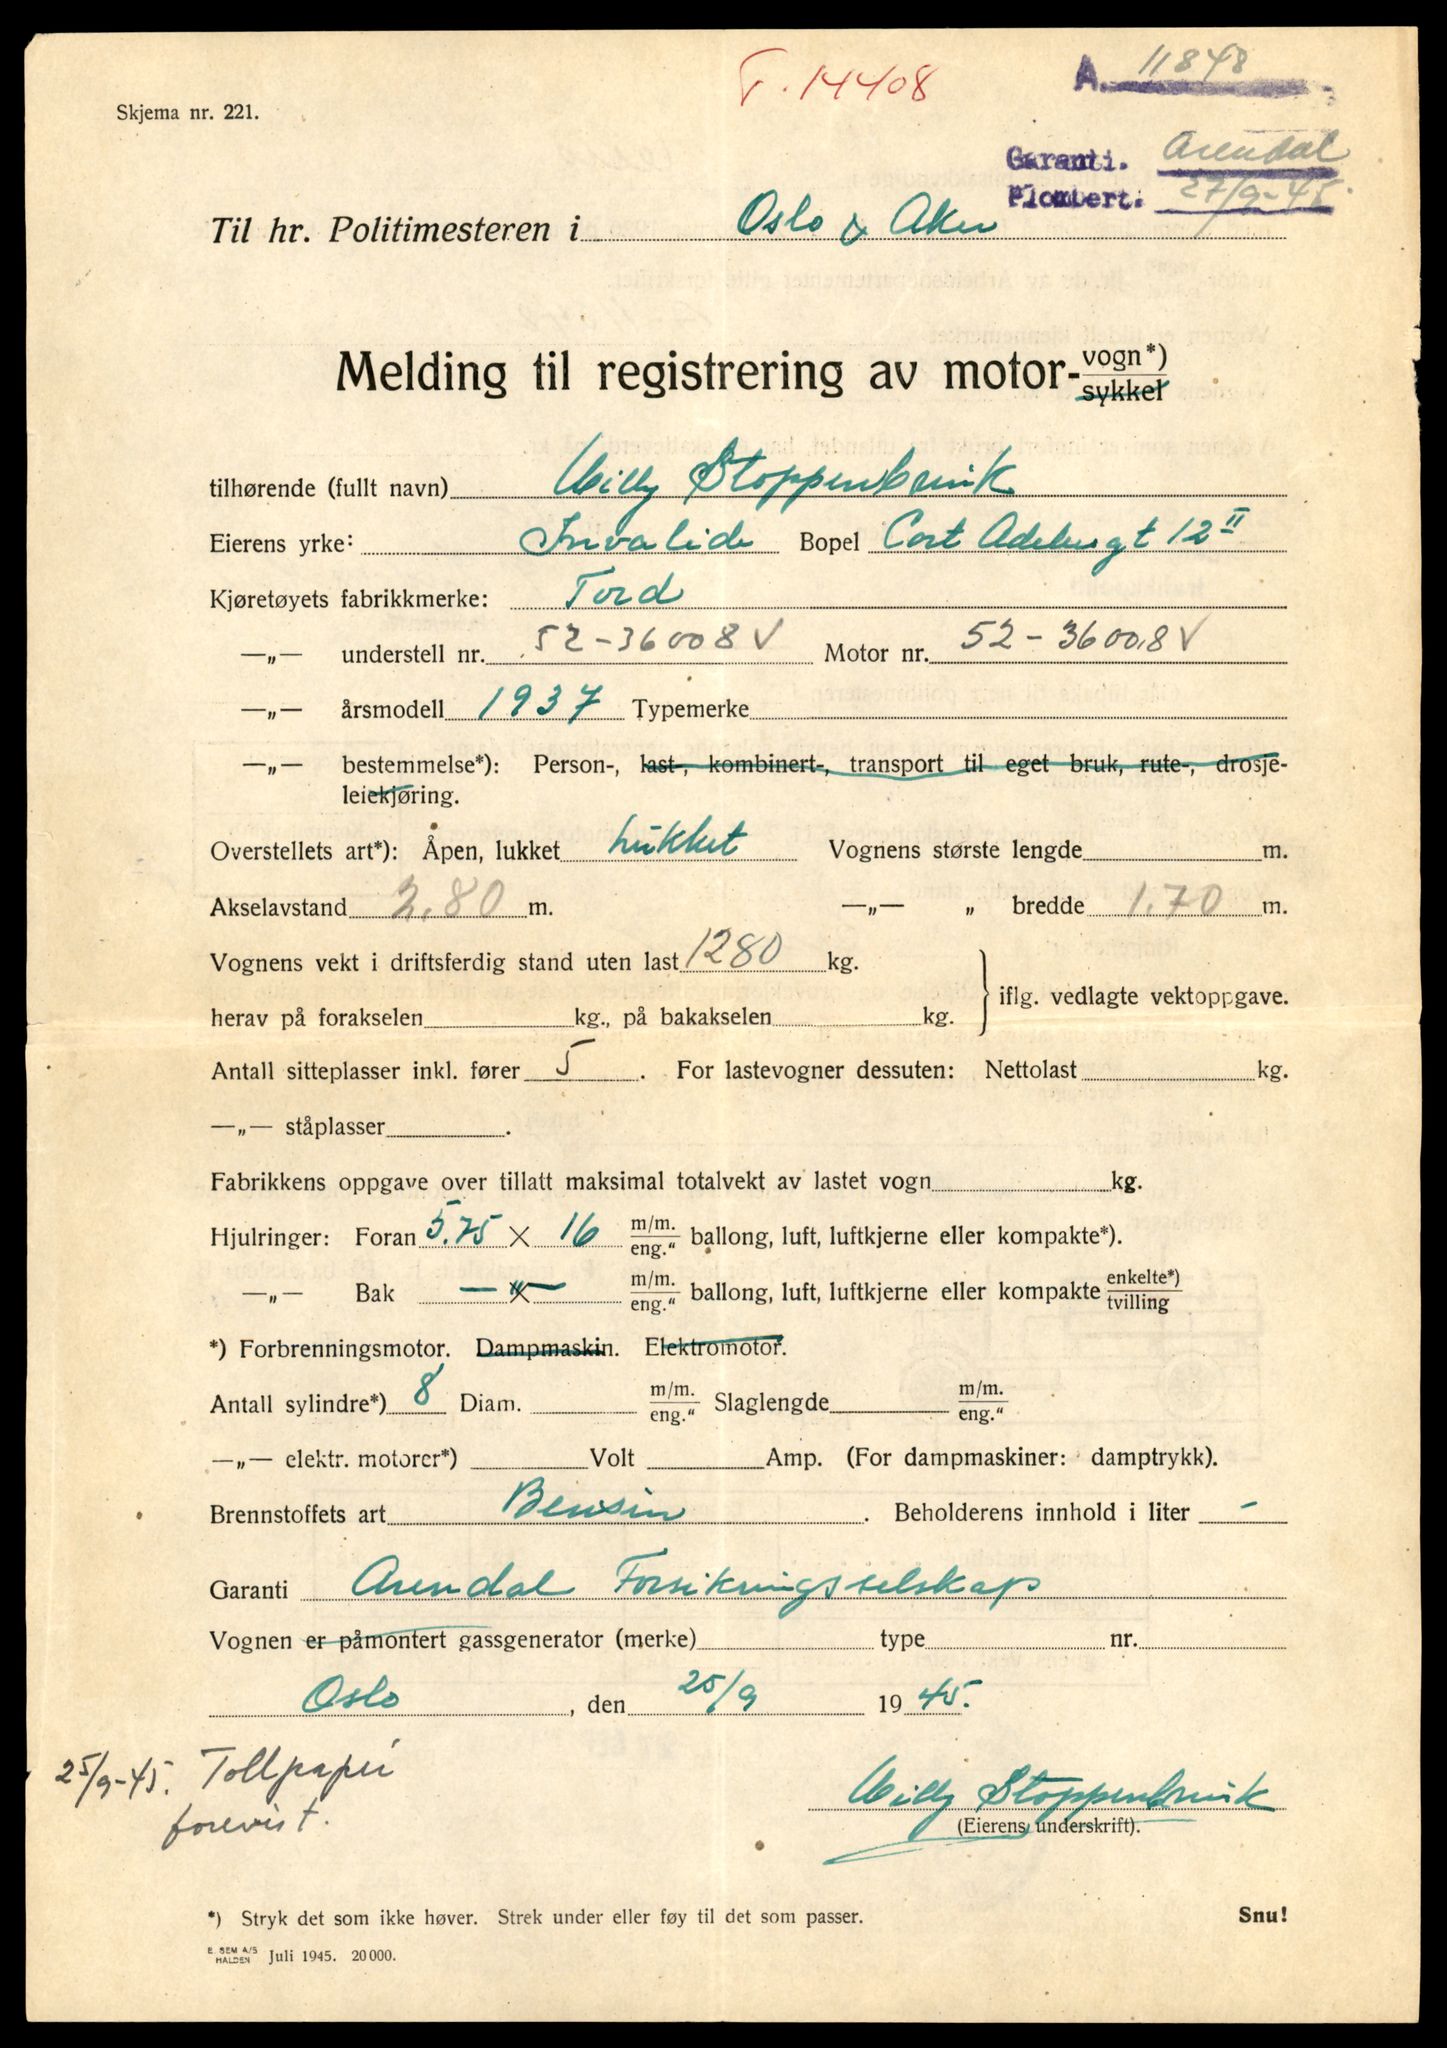 T. 14408
A. 11848
Skjema nr. 221.
Garanti. Arendal
Plombert. 27/9-45.
Til hr. Politimesteren i Oslo & Aker
Melding til registrering av motor-vogn*)
sykkel
tilhørende (fullt navn) Willy Stoppenbrink
Eierens yrke: Invalide Bopel Cort Adelersgt 12 II
Kjøretøyets fabrikkmerke: Ford
—„— understell nr. 52-36008 V Motor nr. 52-36008 V
—„— årsmodell 1937 Typemerke
—„— bestemmelse*): Person-, last-, kombinert-, transport til eget bruk, rute-, drosje-
leiekjøring.
Overstellets art*): Åpen, lukket Lukket Vognens største lengde m.
Akselavstand 2.80 m. —„— „ bredde 1.70 m.
Vognens vekt i driftsferdig stand uten last 1280 kg.
iflg. vedlagte vektoppgave.
herav på forakselen kg., på bakakselen kg.
Antall sitteplasser inkl. fører 5. For lastevogner dessuten: Nettolast kg.
—„— ståplasser .
Fabrikkens oppgave over tillatt maksimal totalvekt av lastet vogn kg.
Hjulringer: Foran 5.75 × 16 m/m. eng." ballong, luft, luftkjerne eller kompakte*).
—„— Bak —„— × m/m. eng." ballong, luft, luftkjerne eller kompakte enkelte*) tvilling
*) Forbrenningsmotor. Dampmaskin. Elektromotor.
Antall sylindre*) 8 Diam. m/m. eng." Slaglengde m/m. eng."
—„— elektr. motorer*) Volt Amp. (For dampmaskiner: damptrykk).
Brennstoffets art Bensin . Beholderens innhold i liter -
Garanti Arendal Forsikringsselskap
Vognen er påmontert gassgenerator (merke) type nr.
Oslo, den 25/9 1945.
25/9-45. Tollpapir
forevist.
Willy Stoppenbrink
(Eierens underskrift).
*) Stryk det som ikke høver. Strek under eller føy til det som passer.
Snu!
E. SEM A/S
HALDEN
Juli 1945. 20 000.